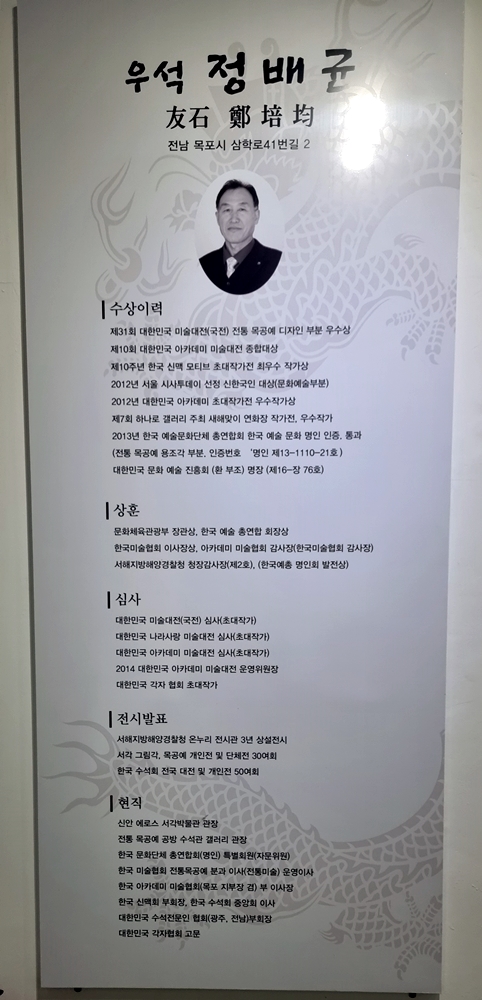 우석 정배균
友石 鄭培均
전남 목포시 삼학로41번길 2
수상이력
제31회 대한민국 미술대전(국전) 전통 목공예 디자인 부분 우수상
제10회 대한민국 아카데미 미술대전 종합대상
제10주년 한국 신맥 모티브 초대작가전 최우수 작가상
2012년 서울 시사투데이 선정 신한국인 대상(문화예술부분)
2012년 대한민국 아카데미 초대작가전 우수작가상
제7회 하나로 갤러리 주최 새해맞이 연화장 작가전, 우수작가
2013년 한국 예술문화단체 총연합회 한국 예술 문화 명인 인증, 통과
(전통 목공예 용조각 부분, 인증번호 '명인 제13-1110-21호)
대한민국 문화 예술 진흥회 (환 부조) 명장 (제16-장 76호)
상훈
문화체육관광부 장관상, 한국 예술 총연합 회장상
한국미술협회 이사장상, 아카데미 미술협회 감사장(한국미술협회 감사장)
서해지방해양경찰청 청장감사장(제2호), (한국예총 명인회 발전상)
심사
대한민국 미술대전(국전) 심사(초대작가)
대한민국 나라사랑 미술대전 심사(초대작가)
대한민국 아카데미 미술대전 심사(초대작가)
2014 대한민국 아카데미 미술대전 운영위원장
대한민국 각자 협회 초대작가
전시발표
서해지방해양경찰청 온누리 전시관 3년 상설전시
서각 그림각, 목공예 개인전 및 단체전 30여회
한국 수석회 전국 대전 및 개인전 50여회
현직
신안 에로스 서각박물관 관장
전통 목공예 공방 수석관 갤러리 관장
한국 문화단체 총연합회(명인) 특별회원(자문위원)
한국 미술협회 전통목공예 분과 이사(전통미술) 운영이사
한국 아카데미 미술협회(목포 지부장 겸) 부 이사장
한국 신맥회 부회장, 한국 수석회 중앙회 이사
대한민국 수석전문인 협회(광주, 전남)부회장
대한민국 각자협회 고문